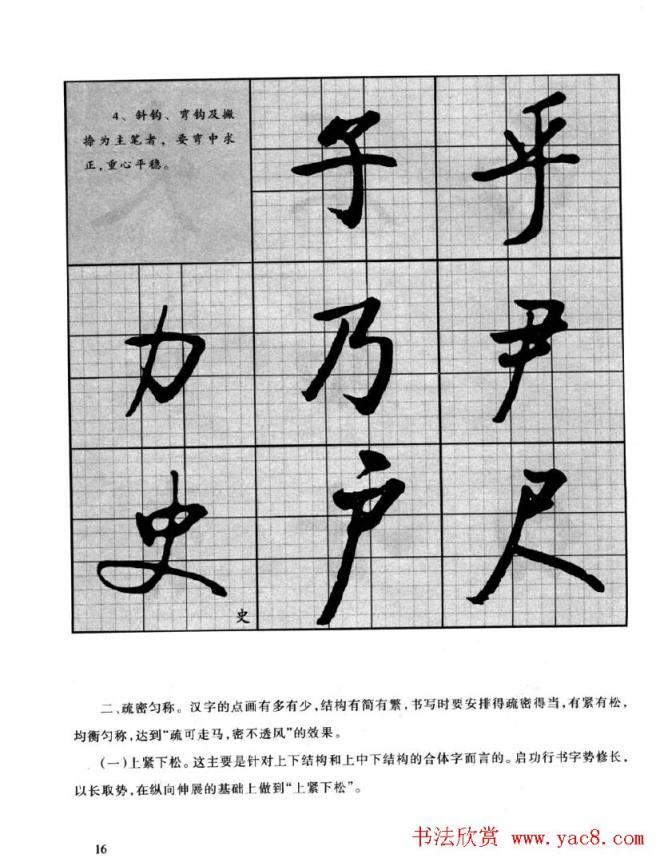 4、斜钩、弯钩及撇
捺为主笔者，要弯中求
正，重心平稳。
子 乎
力 乃 尹
史 户 尺
史
二、疏密匀称。汉字的点画有多有少，结构有简有繁，书写时要安排得疏密得当，有紧有松，
均衡匀称，达到“疏可走马，密不透风”的效果。
（一）上紧下松。这主要是针对上下结构和上中下结构的合体字而言的。启功行书字势修长，
以长取势，在纵向伸展的基础上做到“上紧下松”。
16
书法欣赏 www.yac8.com